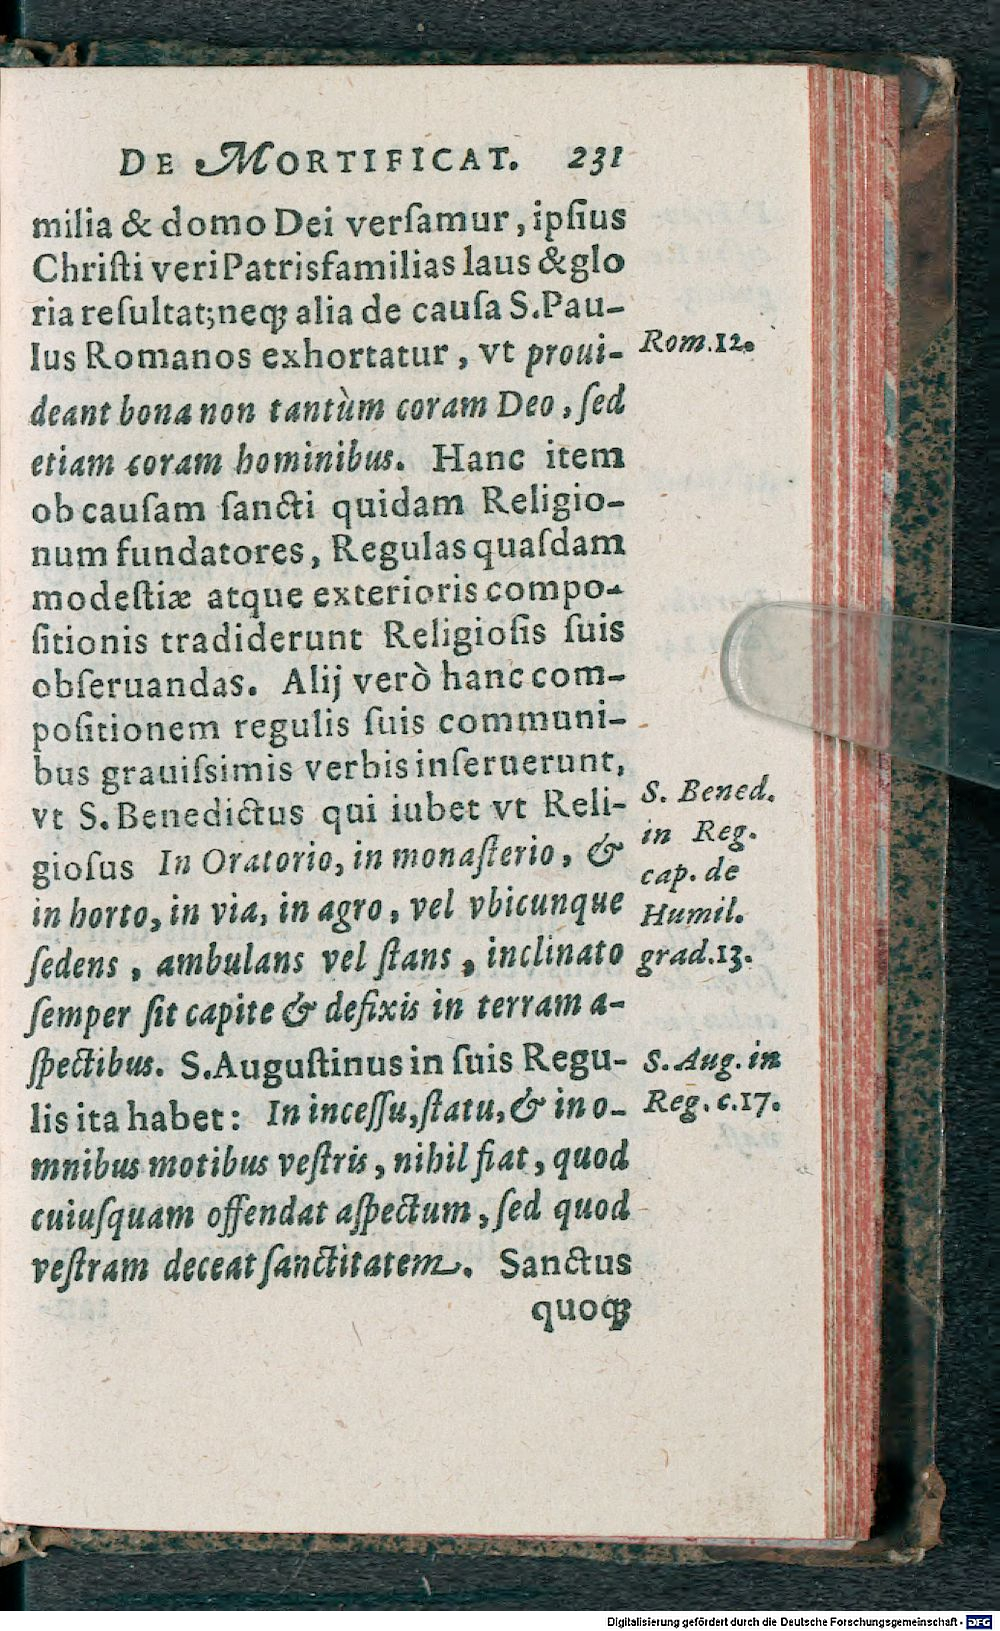 DE MORTIFICAT. 231
milia & domo Dei verſamur, ipſius
Chriſti veri Patrisfamilias laus & glo
ria reſultat; neq́ꝫ alia de cauſa S. Pau-
lus Romanos exhortatur, vt proui-
Rom. 12.
deant bona non tantùm coram Deo, ſed
etiam coram hominibus. Hanc item
ob cauſam ſancti quidam Religio-
num fundatores, Regulas quaſdam
modeſtiæ atque exterioris compo-
ſitionis tradiderunt Religioſis ſuis
obſeruandas. Alij verò hanc com-
poſitionem regulis ſuis communi-
bus grauiſsimis verbis inſeruerunt,
vt S. Benedictus qui iubet vt Reli-
gioſus In Oratorio, in monaſterio, &
in horto, in via, in agro, vel vbicunque
ſedens, ambulans vel ſtans, inclinato
ſemper ſit capite & defixis in terram a-
S. Bened.
in Reg.
cap. de
Humil.
grad. 13.
ſpectibus. S. Auguſtinus in ſuis Regu-
lis ita habet: In inceſſu, ſtatu, & in o-
S. Aug. in
Reg. c. 17.
mnibus motibus veſtris, nihil fiat, quod
cuiuſquam offendat aſpectum, ſed quod
veſtram deceat ſanctitatem. Sanctus
quoqꝫ
Digitalisierung gefördert durch die Deutsche Forschungsgemeinschaft - DFG